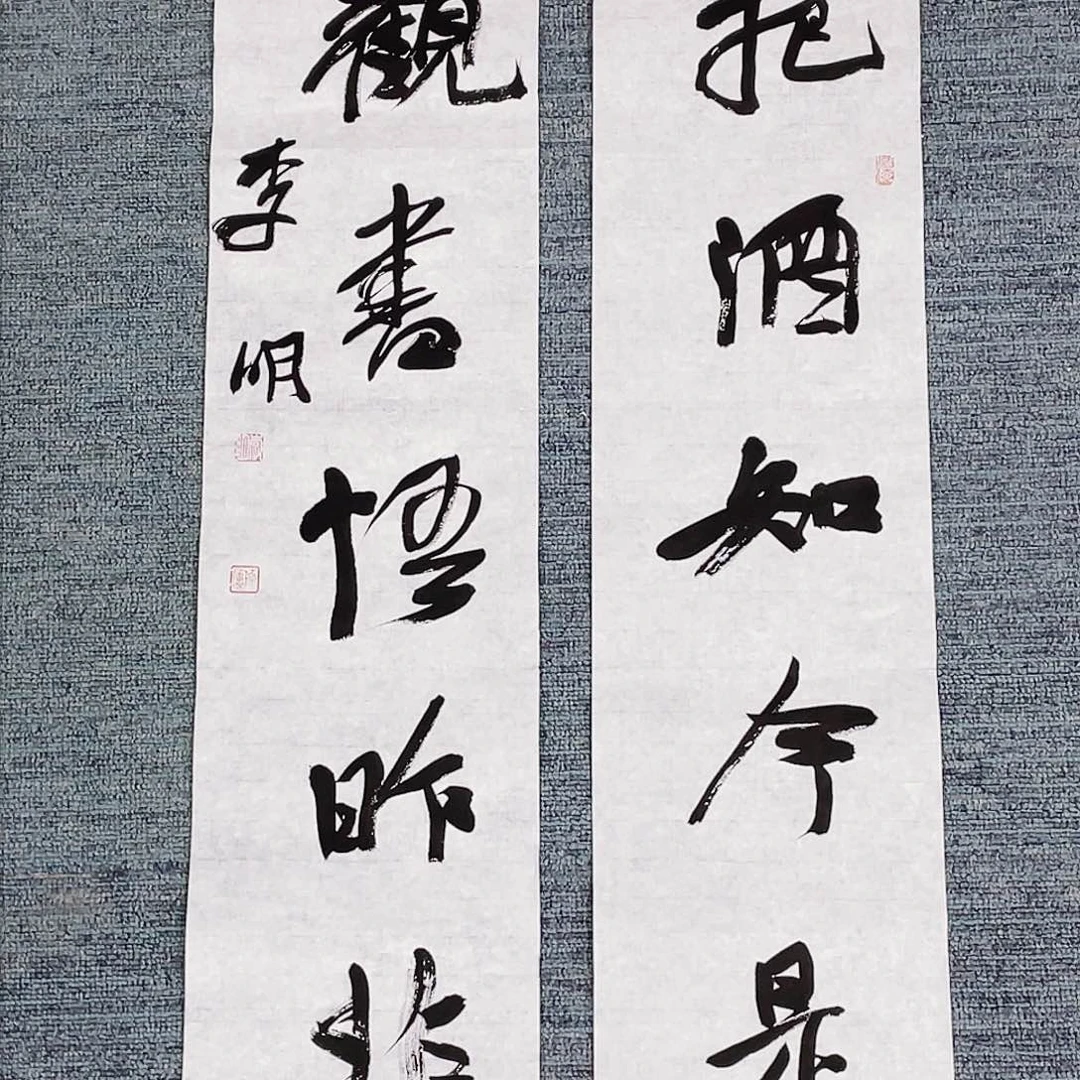 抱酒知今是
觀書悟昨非
李明